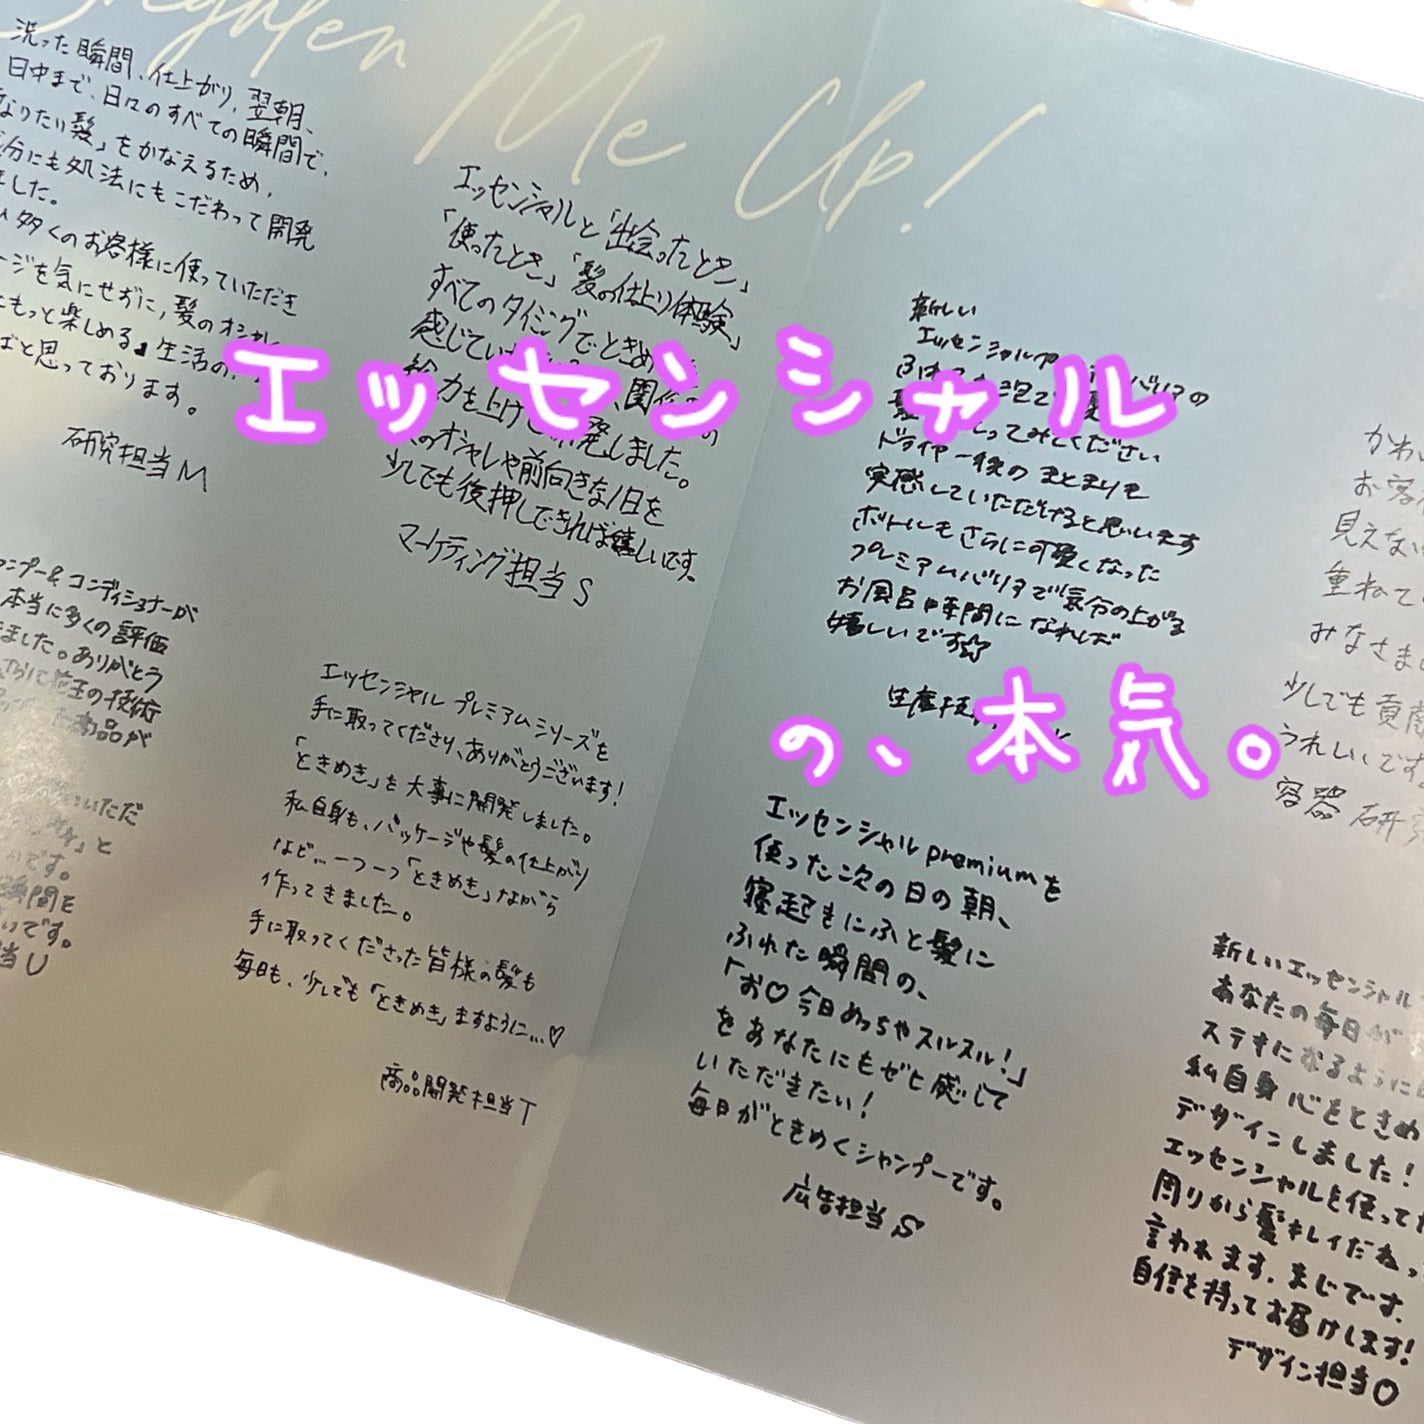 Me Up!
洗った瞬間、仕上がり、翌朝、
日中まで、日々のすべての瞬間で、
なりたい髪」をかなえるため、
分にも処法にもこだわって開発
ました。
多くのお客様に使っていただき
ージを気にせずに、髪のオシャレ
もっと楽しめる』生活の
ばと思っております。
研究担当M
エッセンシャルと「出会ったとき」
「使ったとき」「髪の仕上り体験」
すべてのタイミングでときめ
感じてい
総力を上げ 発しました。
のオシャレや前向きな1日を
少しでも後押しできれば嬉しいです。
マーケティング担当S
新しい
エッセンシャル バリアの
ってみてください
ドライヤー後のまとまりも
実感していただけると思います
ボトルもさらに可愛くなった
プレミアムバリアで気分の上がる
お風呂時間になれば
嬉しいです☆
生産技
かわい
お客
見えない
重ねて
みなさま
少しでも貢献
うれしいです
容器研究
エッセンシャル
の、本気。
ンプー&コンディショナーが
本当に多くの評価
ました。ありがとう
さらに花王の技術
商品が
いただ
と
です。
瞬間を
いです。
当U
エッセンシャル プレミアムシリーズを
手に取ってくださり、ありがとうございます!
「ときめき」を大事に開発しました。
私自身も、パッケージや髪の仕上がり
など…一つ一つ「ときめき」ながら
作ってきました。
手に取ってくださった皆様の髪も
毎日も、少しでも「ときめき」ますように…♡
商品開発担当T
エッセンシャルpremiumを
使った次の日の朝、
寝起きにふと髪に
ふれた瞬間の、
「お♡今日めっちゃスルスル!」
をあなたにもぜひ感じて
いただきたい!
毎日がときめくシャンプーです。
広告担当S
新しいエッセンシャル
あなたの毎日が
ステキになるように
私自身心をときめ
デザインしました!
エッセンシャルを使って
周りから髪キレイだねっ
言われます。まじです。
自信を持ってお届けします!
デザイン担当O